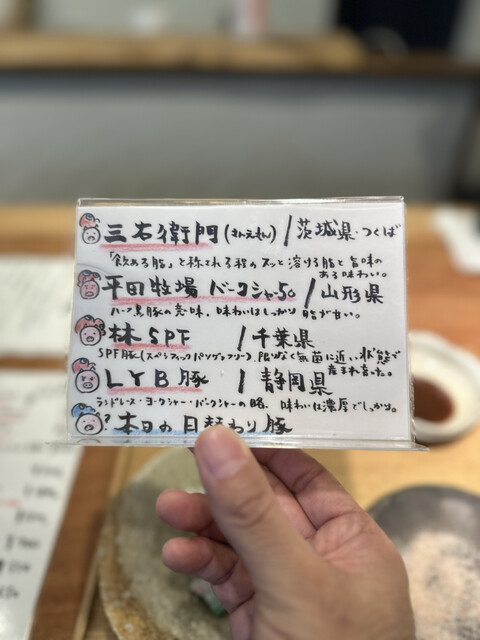 三右衛門(さんえもん) / 茨城県・つくば
「飲める脂」と称される程のスッと溶ける脂と旨味の
ある味わい。
平田牧場 バークシャー50 / 山形県
ハーフ黒豚の意味。味わいはしっかり 脂が甘い。
林SPF / 千葉県
SPF豚(スペシフィックパソゾンフリー)。限りなく無菌に近い状態で
産まれ育った。
LYB豚 / 静岡県
ランドレース・ヨークシャー・バークシャーの略。味わいは濃厚でしっかり。
本日の日替わり豚